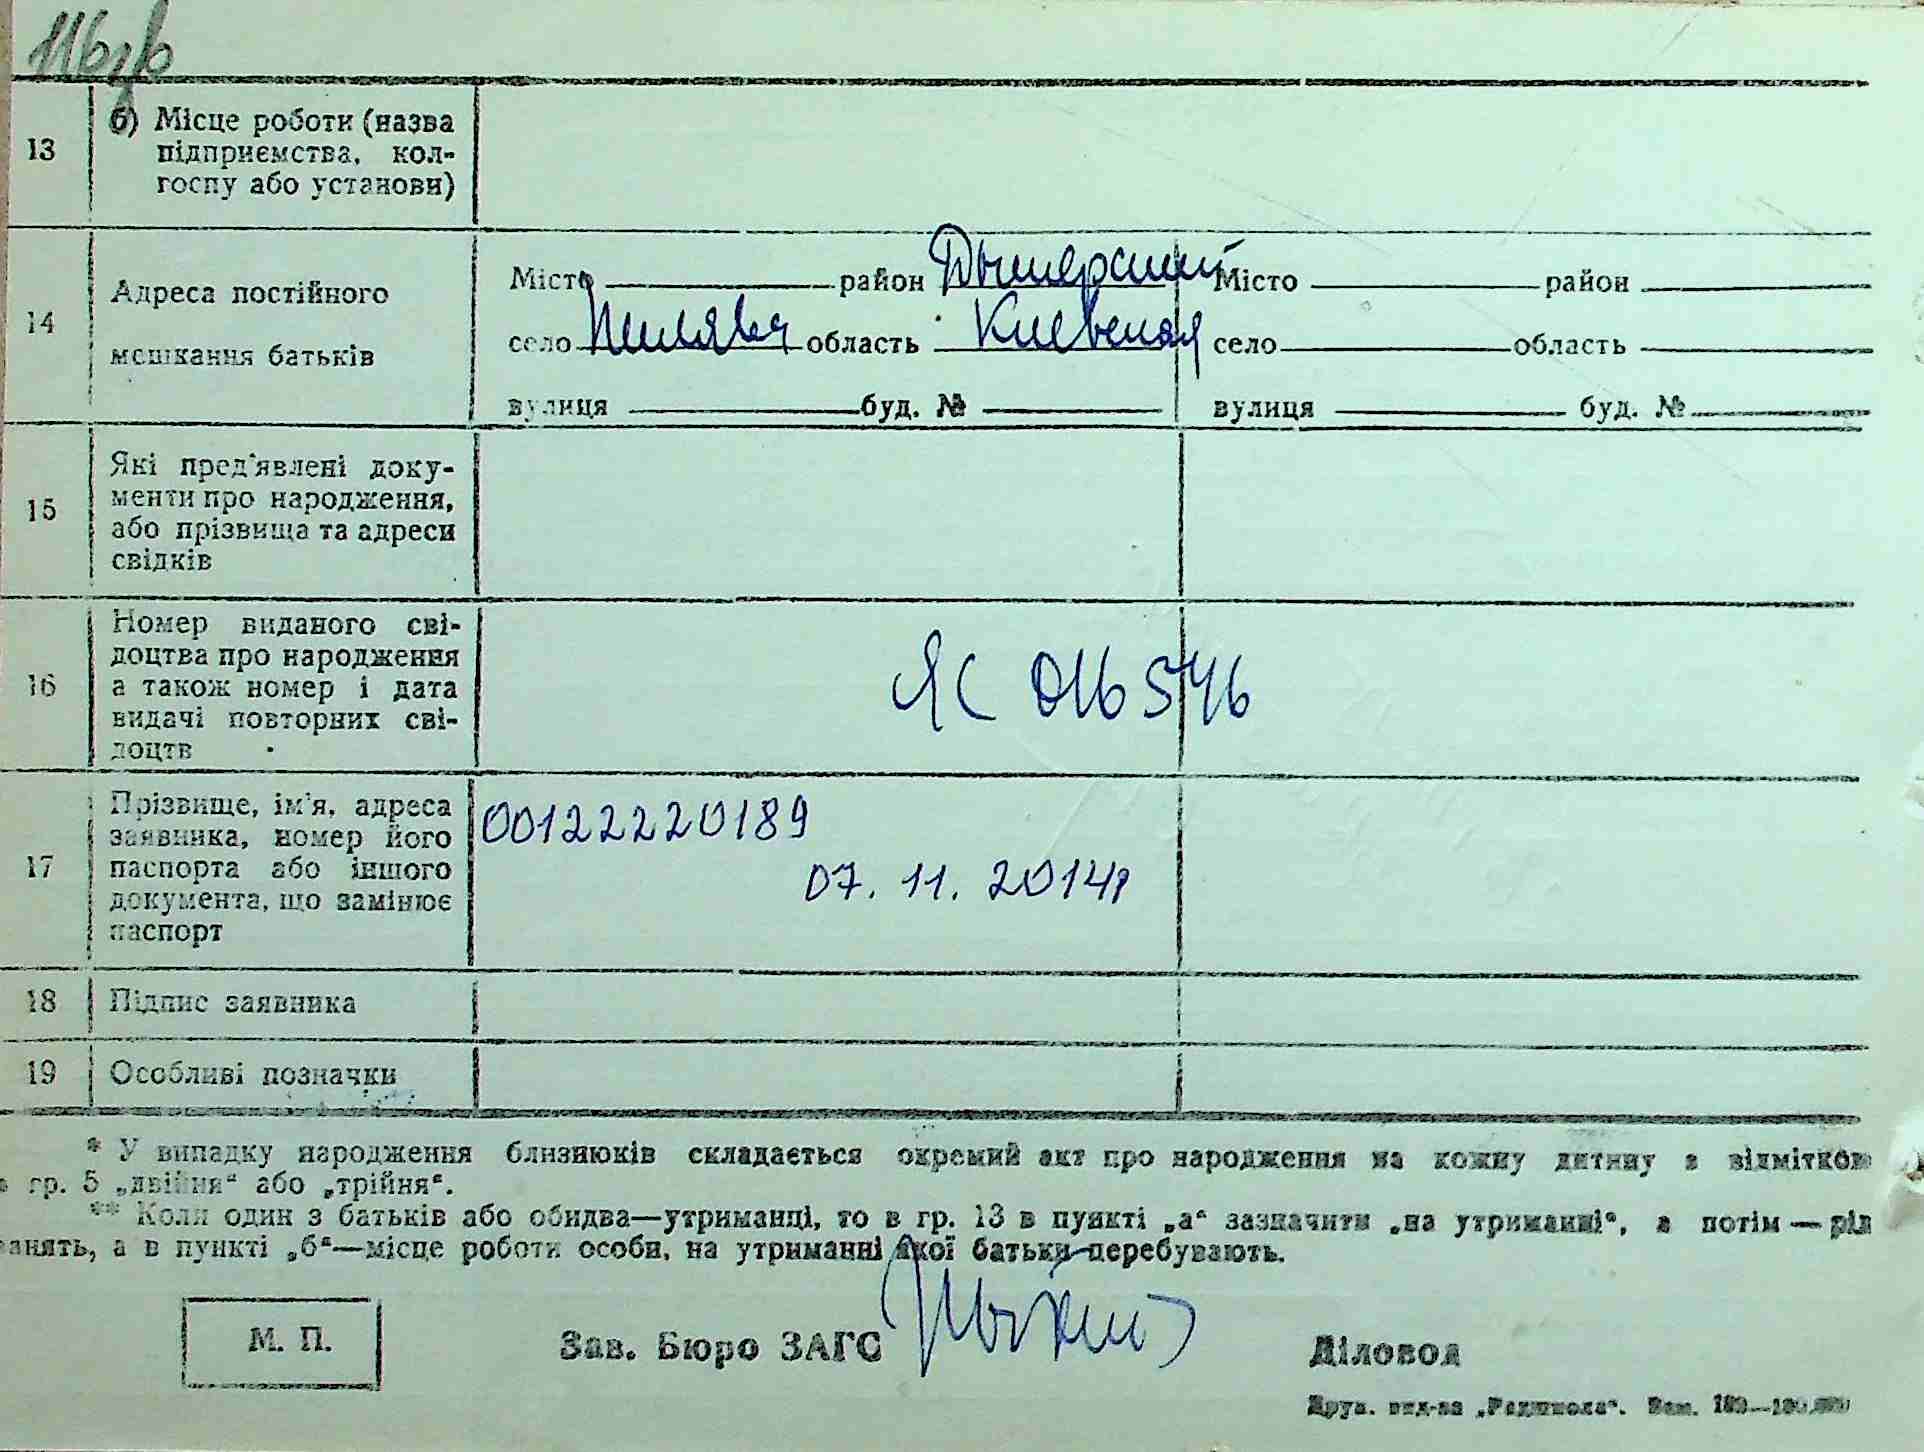 116зв
13 б) Місце роботи (назва
підприємства, кол-
госпу або установи)
14 Адреса постійного
мешкання батьків
Місто район Дымерский Місто район
село Пилява область Киевская село область
вулиця буд. № вулиця буд. №
15 Які пред'явлені доку-
менти про народження,
або прізвища та адреси
свідків
16 Номер виданого сві-
доцтва про народження
а також номер і дата
видачі повторних сві-
доцтв
ЯС 016546
17 Прізвище, ім'я, адреса
заявника, номер його
паспорта або іншого
документа, що замінює
паспорт
00122220189
07. 11. 2014р
18 Підпис заявника
19 Особливі позначки
* У випадку народження близнюків складається окремий акт про народження на кожну дитину з відміткою
в гр. 5 „двійня“ або „трійня“.
** Коли один з батьків або обидва—утриманці, то в гр. 13 в пункті „а“ зазначити „на утриманні“, а потім — рід
занять, а в пункті „б“—місце роботи особи, на утриманні якої батьки перебувають.
М. П.
Зав. Бюро ЗАГС
Діловод
Друк. вид-ва „Радшкола“. Зам. 189—